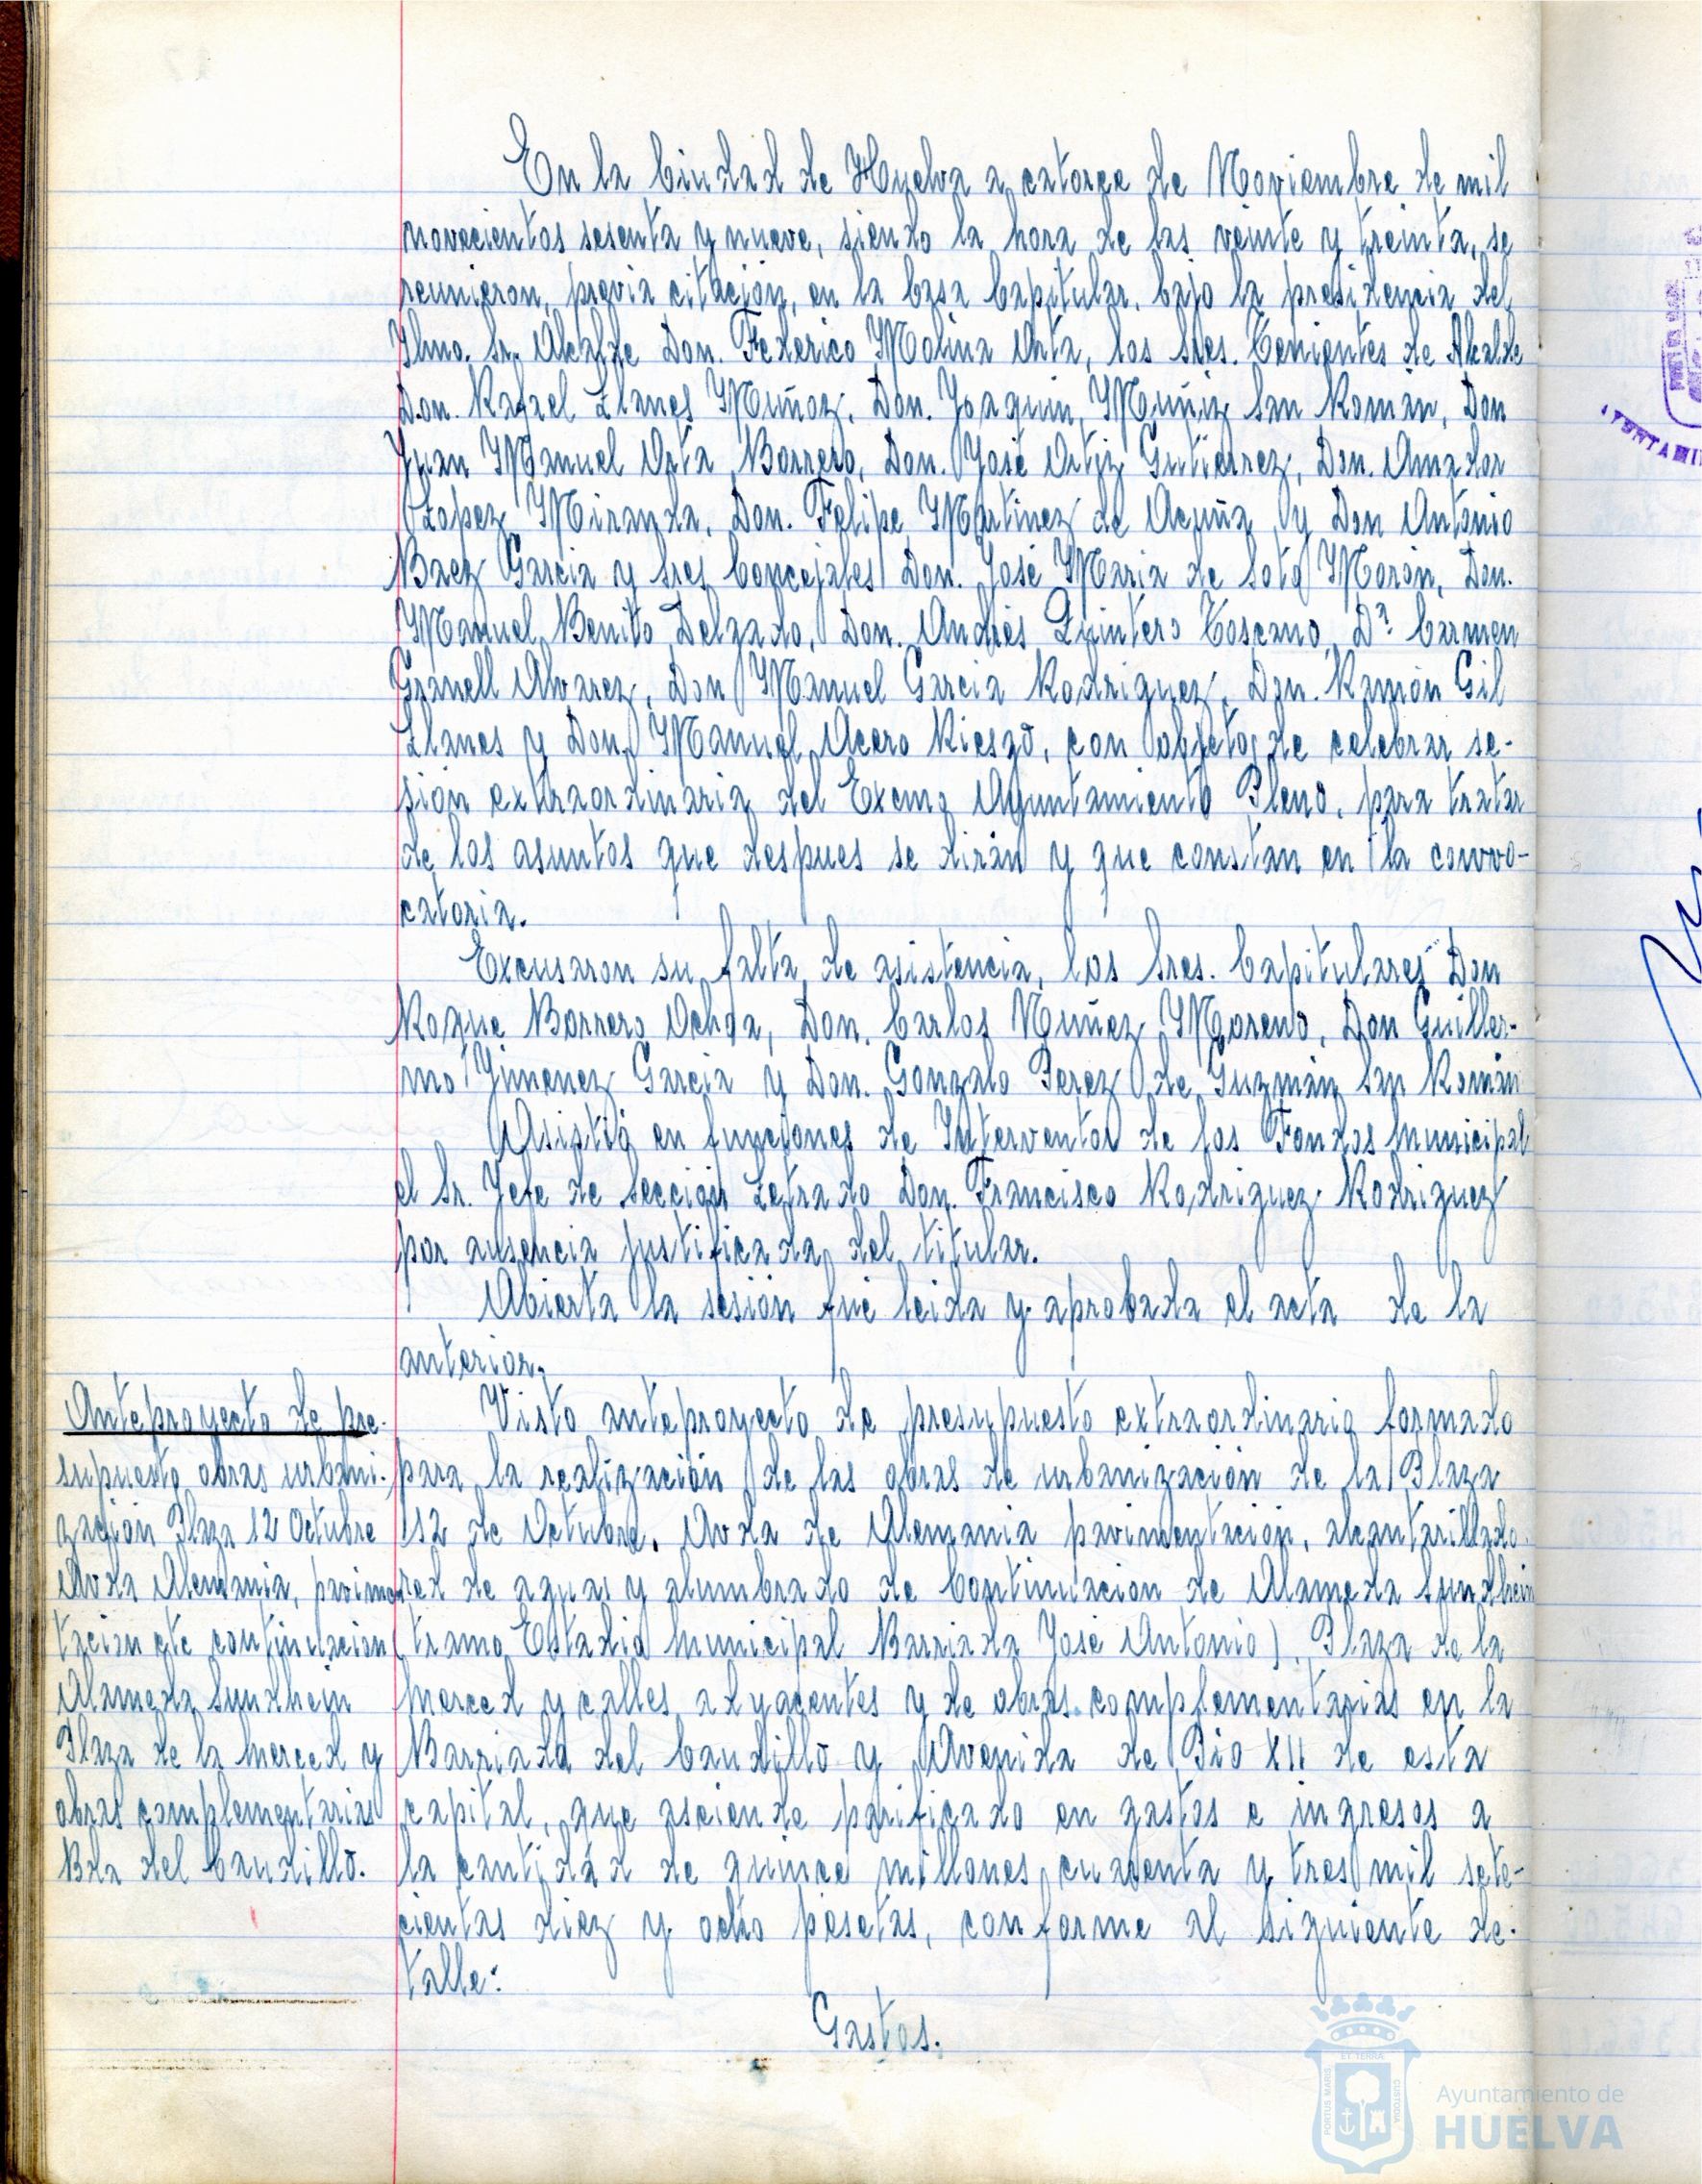 En la Ciudad de Huelva a catorce de Noviembre de mil
novecientos sesenta y nueve, siendo la hora de las veinte y treinta, se
reunieron, previa citación, en la Casa Capitular, bajo la presidencia del
Ilmo. Sr. Alcalde Don. Federico Molina Orta, los Sres. Tenientes de Alcalde
Don. Rafael Llanes Muñoz, Don. Joaquin Muñiz San Román, Don
Juan Manuel Orta Borrero, Don. José Ortiz Gutierrez, Don. Amador
Lopez Miranda, Don. Felipe Martinez de Acuña y Don Antonio
Baez Garcia y Sres Concejales Don. José Maria de Soto Morón, Don.
Manuel Benito Delgado, Don. Andrés Quintero Toscano, Dª Carmen
Granell Alvarez, Don Manuel Garcia Rodriguez, Don. Ramón Gil
Llanes y Don. Manuel Acero Riesgo, con objeto de celebrar se-
sión extraordinaria del Excmo Ayuntamiento Pleno, para tratar
de los asuntos que despues se dirán y que constan en la convo-
catoria.
Excusaron su falta de asistencia, los Sres. Capitulares Don
Roque Borrero Ochoa, Don. Carlos Nuñez Moreno, Don Guiller-
mo Jimenez Garcia y Don. Gonzalo Perez de Guzmán San Román
Asistió en funciones de Interventor de los Fondos Municipal
el Sr. Jefe de Sección Letrado Don. Francisco Rodriguez Rodriguez
por ausencia justificada del titular.
Abierta la sesión fué leida y aprobada el acta de la
anterior.
Anteproyecto de pre-
supuesto obras urbani-
zación Plaza 12 Octubre
Avda Alemania, pavimen
tacion etc continuacion
Alameda Sundhein
Plaza de la Merced y
obras complementarias
Bda del Caudillo.
Visto anteproyecto de presupuesto extraordinario formado
para la realización de las obras de urbanización de la Plaza
12 de Octubre, Avda de Alemania pavimentación, alcantarillado
red de aguas y alumbrado de Continuacion de Alameda Sundhein
(tramo Estadio Municipal Barriada José Antonio), Plaza de la
Merced y calles adyacentes y de obras complementarias en la
Barriada del Caudillo y Avenida de Pio XII de esta
capital, que asciende parificado en gastos e ingresos a
la cantidad de quince millones, cuarenta y tres mil sete-
cientas diez y ocho pesetas, conforme al siguiente de-
talle:
Gastos.
PORTUS MARIS
ET TERRA
CUSTODIA
Ayuntamiento de
HUELVA